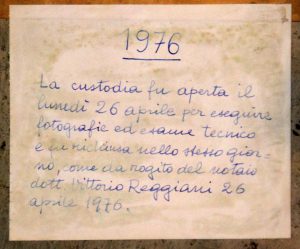 1976
La custodia fu aperta il
lunedì 26 aprile per eseguire
fotografie ed esame tecnico
e fu richiusa nello stesso gior-
no, come da rogito del notaio
dott. Vittorio Reggiani 26
aprile 1976.